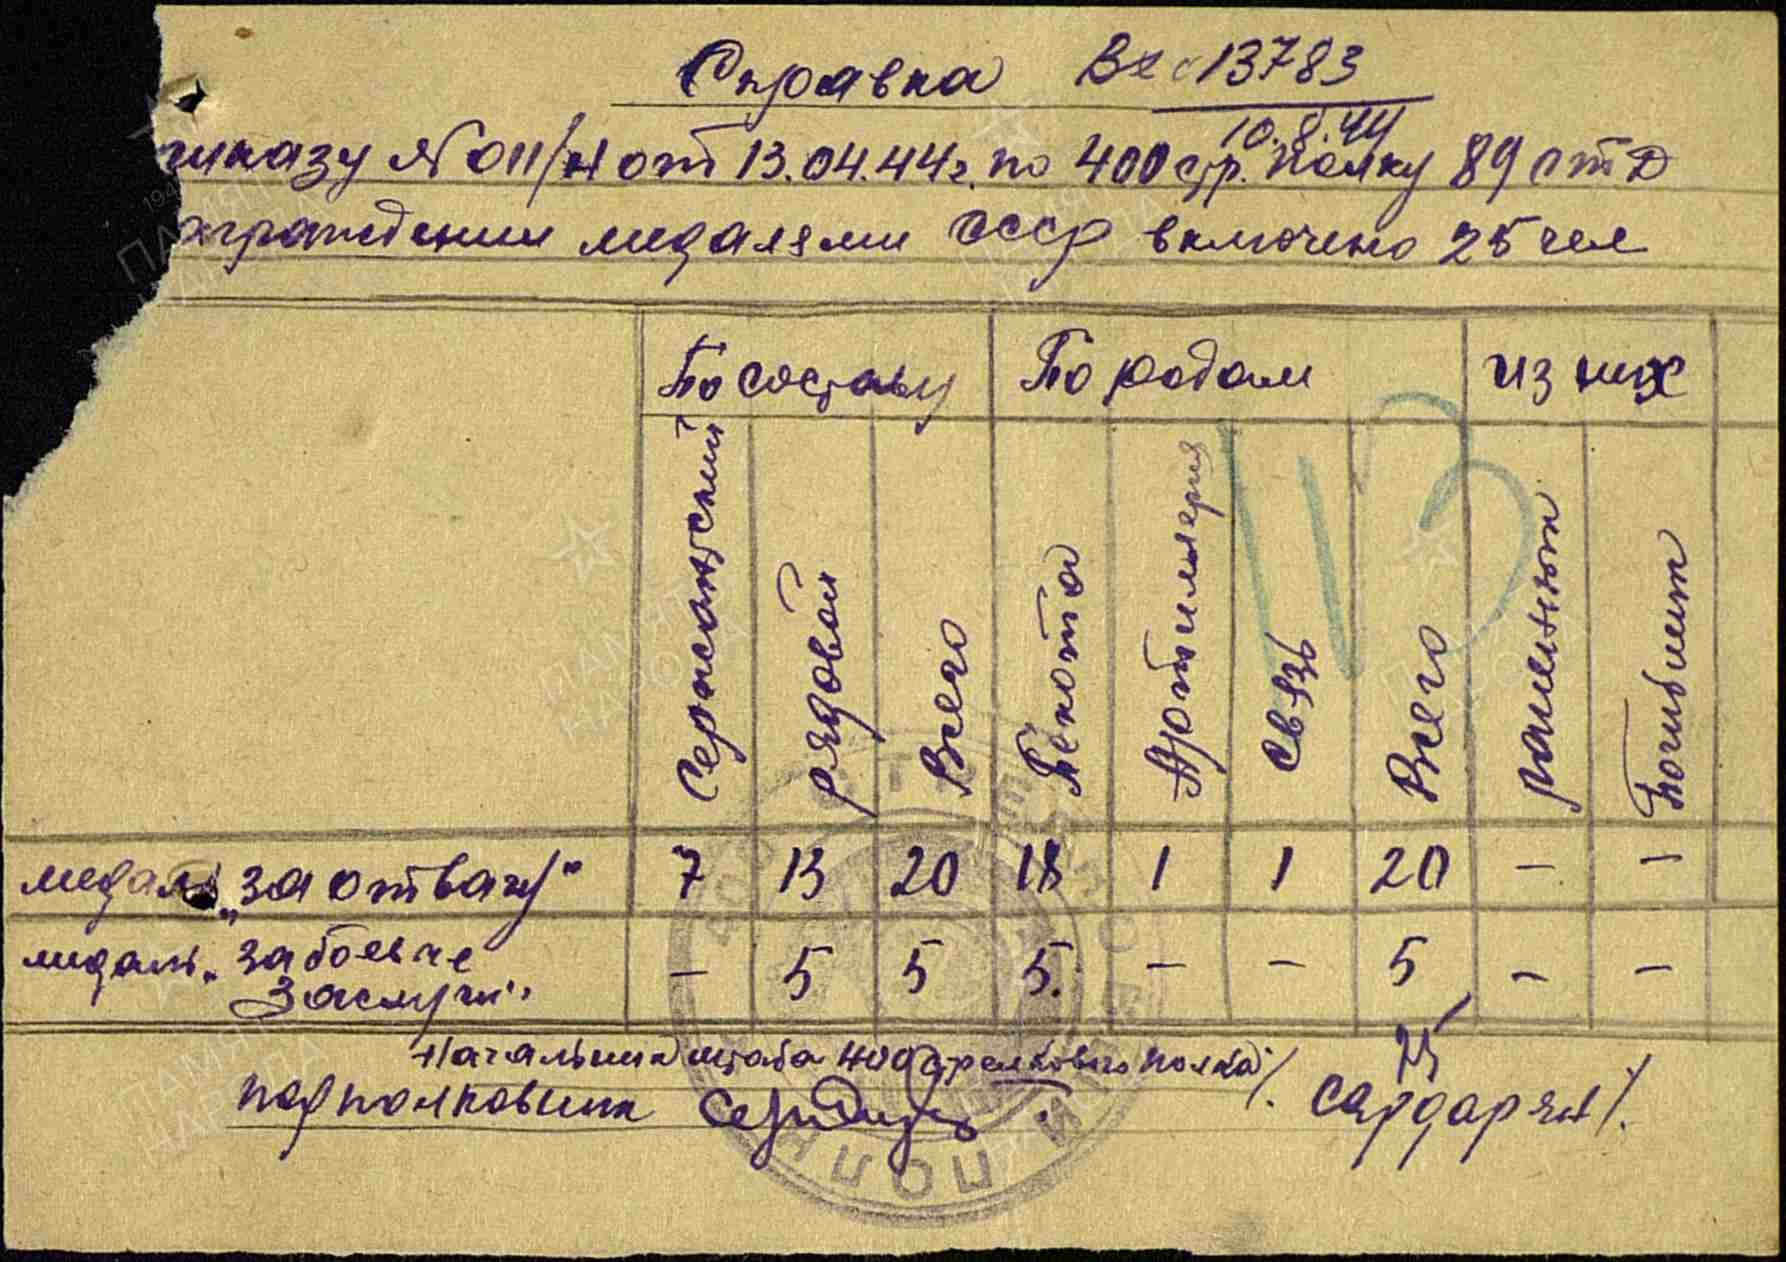 Справка Вх 13783
10.5.44
риказу № 011/н от 13.04.44г. по 400 стр. полку 89 стд
награждении медалями СССР включено 25 чел
По составу По родам из них
Сержантский рядовой Всего Пехота Артиллерия Связь Всего ранен Погиб
медаль „за отвагу" 7 13 20 18 1 1 20 – –
медаль „за боевые – 5 5 5. – – 5 – –
заслуги"
25
Начальник штаба 400 стрелкового полка
подполковник /. Сардарян /.
ПАМЯТЬ НАРОДА